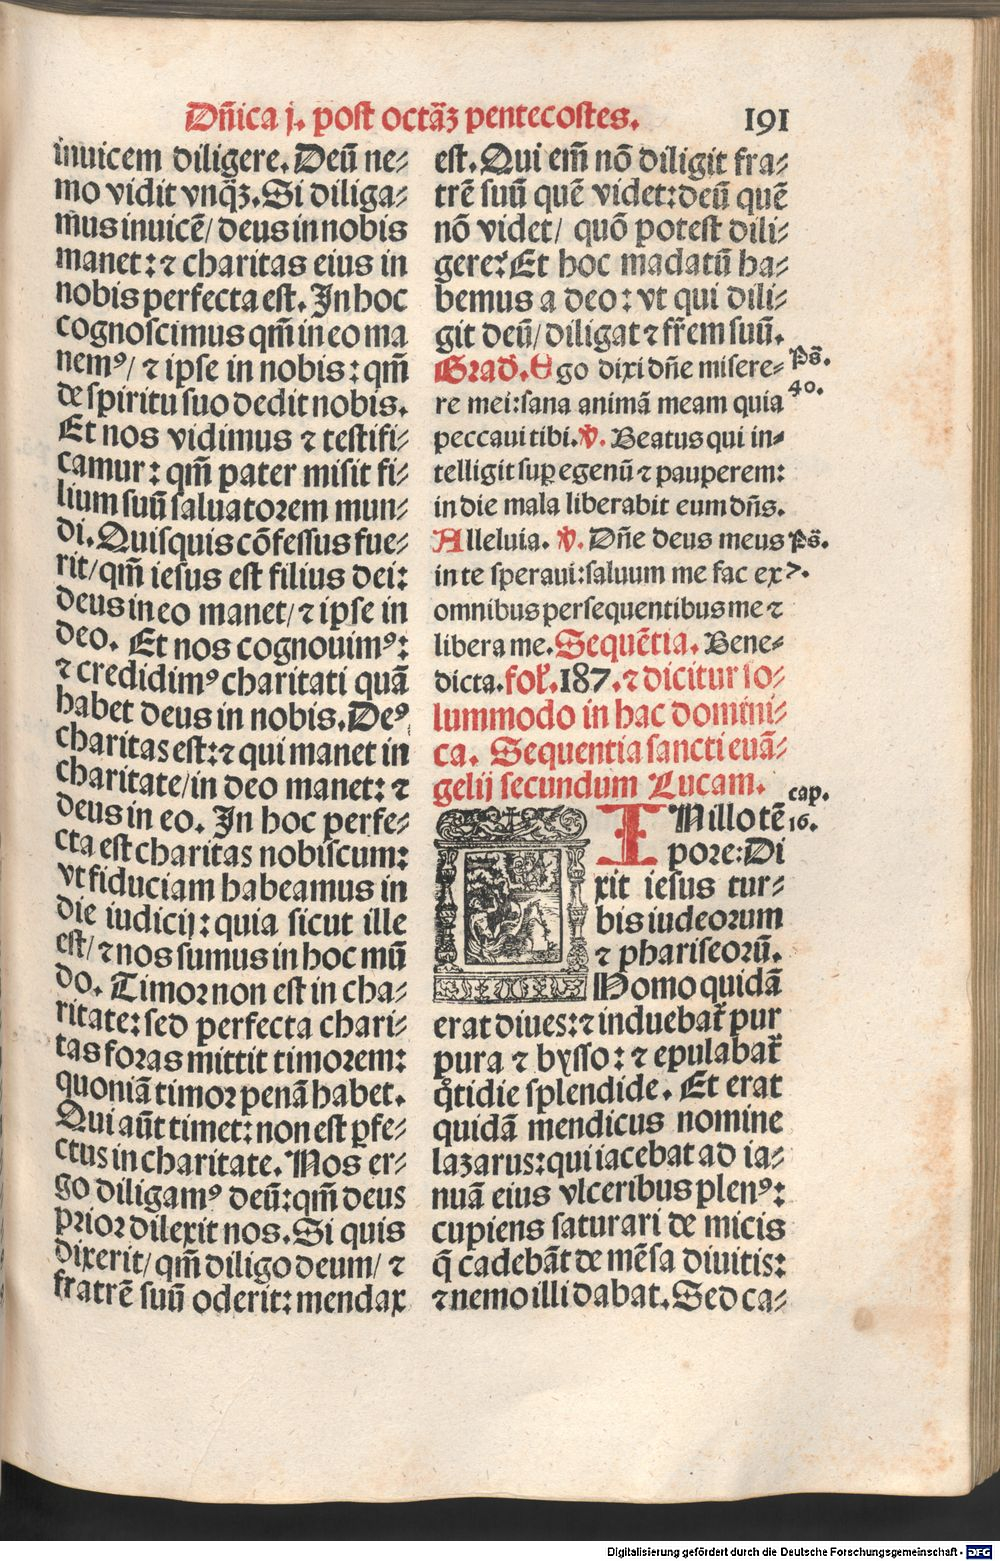 Dñica j. post octãꝫ pentecostes. 191
inuicem diligere. Deũ ne⸗
mo vidit vnq̃ꝫ. Si diliga⸗
mus inuicẽ/ deus in nobis
manet: ⁊ charitas eius in
nobis perfecta est. In hoc
cognoscimus qm̃ in eo ma
nemꝰ/ ⁊ ipse in nobis: qm̃
de spiritu suo dedit nobis.
Et nos vidimus ⁊ testifi⸗
camur: qm̃ pater misit fi⸗
lium suũ saluatorem mun⸗
di. Quisquis cõfessus fue⸗
rit/ qm̃ iesus est filius dei:
deus in eo manet/ ⁊ ipse in
deo. Et nos cognouimꝰ:
⁊ credidimꝰ charitati quã
habet deus in nobis. Deꝰ
charitas est: ⁊ qui manet in
charitate/ in deo manet: ⁊
deus in eo. In hoc perfe⸗
cta est charitas nobiscum:
vt fiduciam habeamus in
die iudicij: quia sicut ille
est/ ⁊ nos sumus in hoc mũ
do. Timor non est in cha⸗
ritate: sed perfecta chari⸗
tas foras mittit timorem:
quoniã timor penã habet.
Qui aũt timet: non est ꝑfe⸗
ctus in charitate. Nos er⸗
go diligamꝰ deũ: qm̃ deus
prior dilexit nos. Si quis
dixerit/ qm̃ diligo deum/ ⁊
fratrẽ suũ oderit: mendax
est. Qui em̃ nõ diligit fra⸗
trẽ suũ quẽ videt: deũ quẽ
nõ videt/ quõ potest dili⸗
gere? Et hoc mãdatũ ha⸗
bemus a deo: vt qui dili⸗
git deũ/ diligat ⁊ fr̃em suũ.
Grad̃. Ego dixi dñe misere⸗ Ps̃.
re mei: sana animã meam quia 40.
peccaui tibi. ℣. Beatus qui in⸗
telligit suꝑ egenũ ⁊ pauperem:
in die mala liberabit eum dñs.
Alleluia. ℣. Dñe deus meus Ps̃.
in te speraui: saluum me fac ex 7.
omnibus persequentibus me ⁊
libera me. Sequẽtia. Bene⸗
dicta. fol̃. 187. ⁊ dicitur so⸗
lummodo in hac domini⸗
ca. Sequentia sancti euã⸗
gelij secundum Lucam. cap.
IN illo tẽ 16.
pore: Di
xit iesus tur⸗
bis iudeorum
⁊ phariseorũ.
Homo quidã
erat diues: ⁊ induebat̃ pur
pura ⁊ bysso: ⁊ epulabat̃
q̊tidie splendide. Et erat
quidã mendicus nomine
lazarus: qui iacebat ad ia⸗
nuã eius vlceribus plenꝰ:
cupiens saturari de micis
q̃ cadebãt de mẽsa diuitis:
⁊ nemo illi dabat. Sed ca⸗
Digitalisierung gefördert durch die Deutsche Forschungsgemeinschaft - DFG